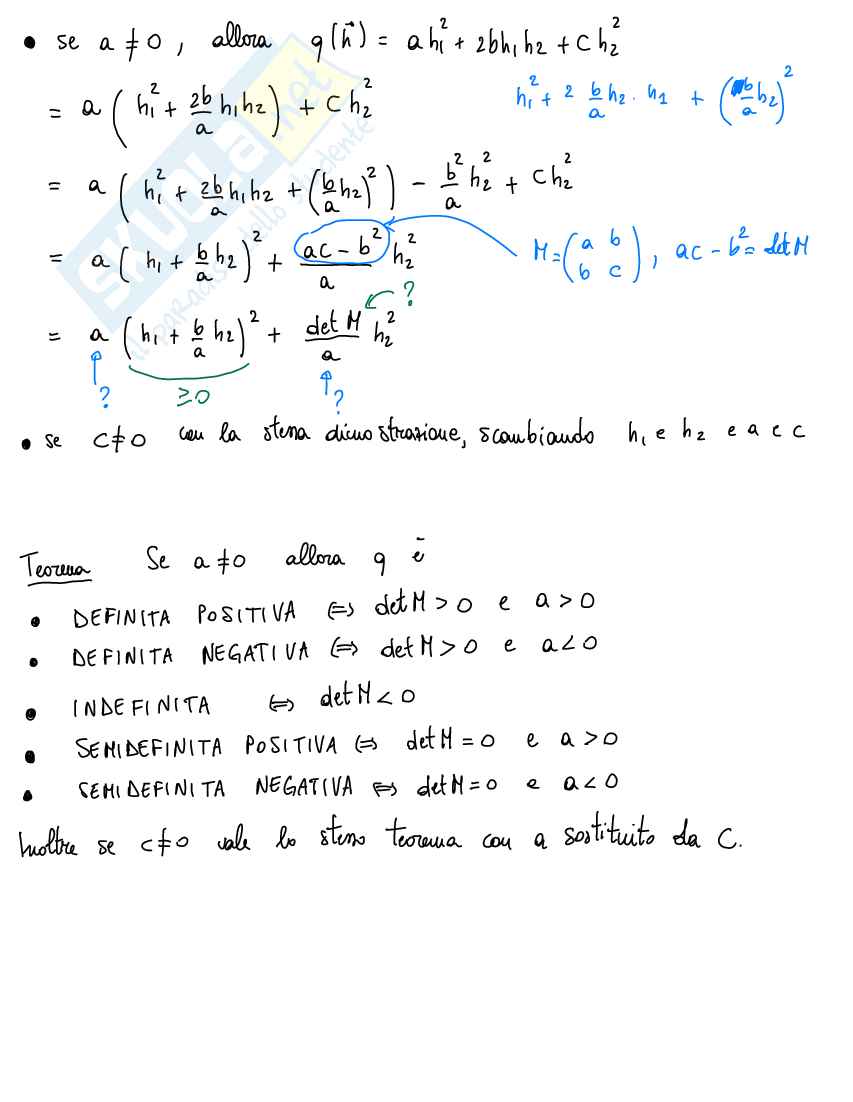 • se a ≠ 0, allora q(h⃗) = ah₁² + 2bh₁h₂ + ch₂²
= a (h₁² + 2b/a h₁h₂) + ch₂²
h₁² + 2 b/a h₂ · h₁ + (b/a h₂)²
= a (h₁² + 2b/a h₁h₂ + (b/a h₂)²) - b²/a h₂² + ch₂²
= a (h₁ + b/a h₂)² + (ac - b²)/a h₂²
M = (a b
b c), ac - b² = det M
?
= a (h₁ + b/a h₂)² + det M/a h₂²
? ≥0 ?
• se c ≠ 0 con la stessa dimostrazione, scambiando h₁ e h₂ e a e c
Teorema Se a ≠ 0 allora q è
• DEFINITA POSITIVA ⇔ det M > 0 e a > 0
• DEFINITA NEGATIVA ⇔ det M > 0 e a < 0
• INDEFINITA ⇔ det M < 0
• SEMIDEFINITA POSITIVA ⇔ det M = 0 e a > 0
• SEMIDEFINITA NEGATIVA ⇔ det M = 0 e a < 0
Inoltre se c ≠ 0 vale lo stesso teorema con a sostituito da c.
SKUOLA.net
il paradiso dello studente